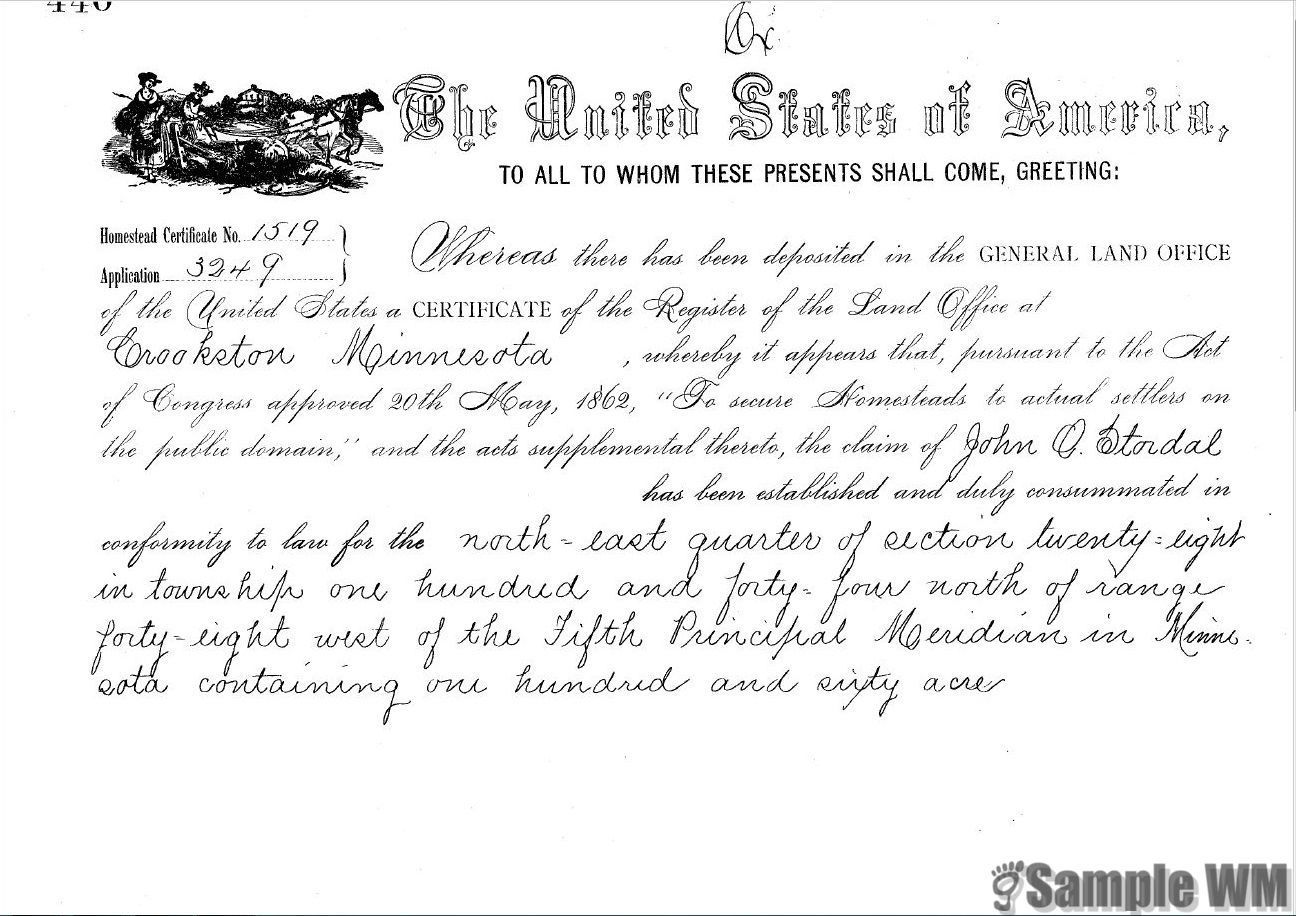 The United States of America,
TO ALL TO WHOM THESE PRESENTS SHALL COME, GREETING:
Homestead Certificate No. 1519
Application 3249
Whereas there has been deposited in the GENERAL LAND OFFICE
of the United States a CERTIFICATE of the Register of the Land Office at
Crookston Minnesota , whereby it appears that, pursuant to the Act
of Congress approved 20th May, 1862, "To secure Homesteads to actual settlers on
the public domain," and the acts supplemental thereto, the claim of John O. Stordal
has been established and duly consummated in
conformity to law for the north-east quarter of section twenty-eight
in township one hundred and forty-four north of range
forty-eight west of the Fifth Principal Meridian in Minne-
sota containing one hundred and sixty acres
Sample WM